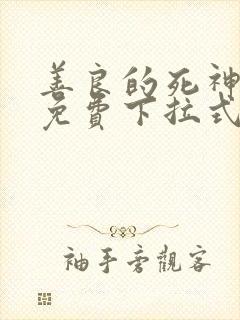 善良的死神
免費下拉式
袖手旁觀客